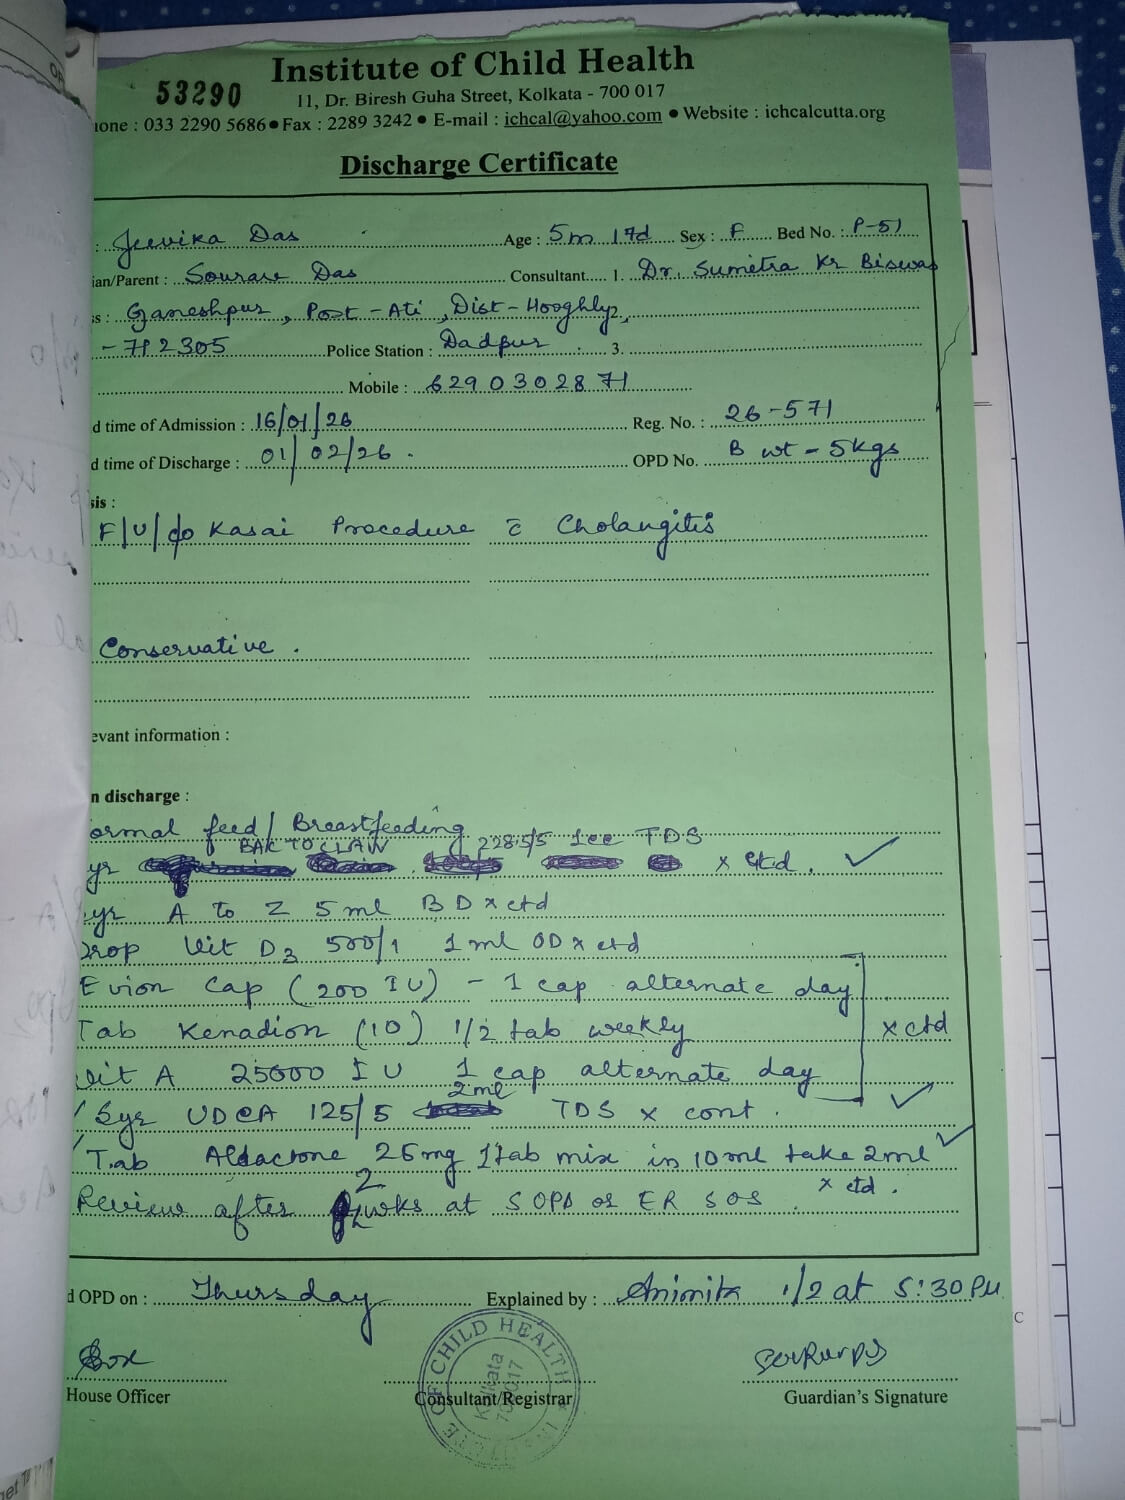 53290
Institute of Child Health
11, Dr. Biresh Guha Street, Kolkata - 700 017
ione : 033 2290 5686 ● Fax : 2289 3242 ● E-mail : ichcal@yahoo.com ● Website : ichcalcutta.org
Discharge Certificate
: Jeevika Das Age : 5m 17d Sex : F Bed No. : P-51
ian/Parent : Sourav Das Consultant 1. Dr. Sumitra Kr Biswas
s : Ganeshpur, Post - Ati, Dist - Hooghly 2.
- 712305 Police Station : Dadpur 3.
Mobile : 6290302871
d time of Admission : 16/01/26 Reg. No. : 26-571
d time of Discharge : 01/02/26. OPD No. B wt - 5kgs
sis :
F/U/c/o Kasai Procedure c̄ Cholangitis
Conservative.
evant information :
n discharge :
ormal feed / Breastfeeding
BACTOCLAW 228.5/5 1cc TDS
yr x ctd.
yr A to Z 5ml BD x ctd
Drop Vit D3 1ml OD x ctd
Evion Cap (200 IU) - 1 cap alternate day
Tab Kenadion (10) 1/2 tab weekly x ctd
Vit A 25000 IU 1 cap alternate day
2ml
Syr UDCA 125/5 TDS x cont.
Tab Aldactone 25mg 1tab mix in 10ml take 2ml
x ctd.
Review after 2 wks at SOPD or ER SOS
d OPD on : Thursday Explained by : 1/2 at 5:30 PM
C
House Officer Consultant/Registrar Guardian's Signature
INSTITUTE OF CHILD HEALTH
Kolkata
700017